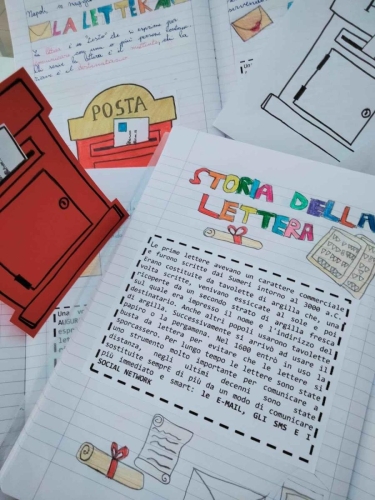 LA LETTERA
POSTA
STORIA DELLA
LETTERA
Le prime lettere avevano un carattere commerciale
e furono scritte dai Sumeri intorno al 3000 a.C.
Erano costituite da tavolette di argilla che, una
volta scritte, venivano essiccate al sole e poi
ricoperte da un secondo strato di argilla fresca
sul quale era impresso il nome e l'indirizzo del
destinatario. Anche altri popoli usarono tavolette
di argilla. Successivamente si arrivò ad usare il
papiro o la pergamena. Nel 1600 entrò in uso la
busta da lettera per evitare che le lettere si
sporcassero. Per lungo tempo le lettere sono state
uno strumento molto importante per comunicare a
distanza, negli ultimi decenni sono state
sostituite sempre di più da un modo di comunicare
più immediato e smart: le E-MAIL, GLI SMS E I
SOCIAL NETWORK